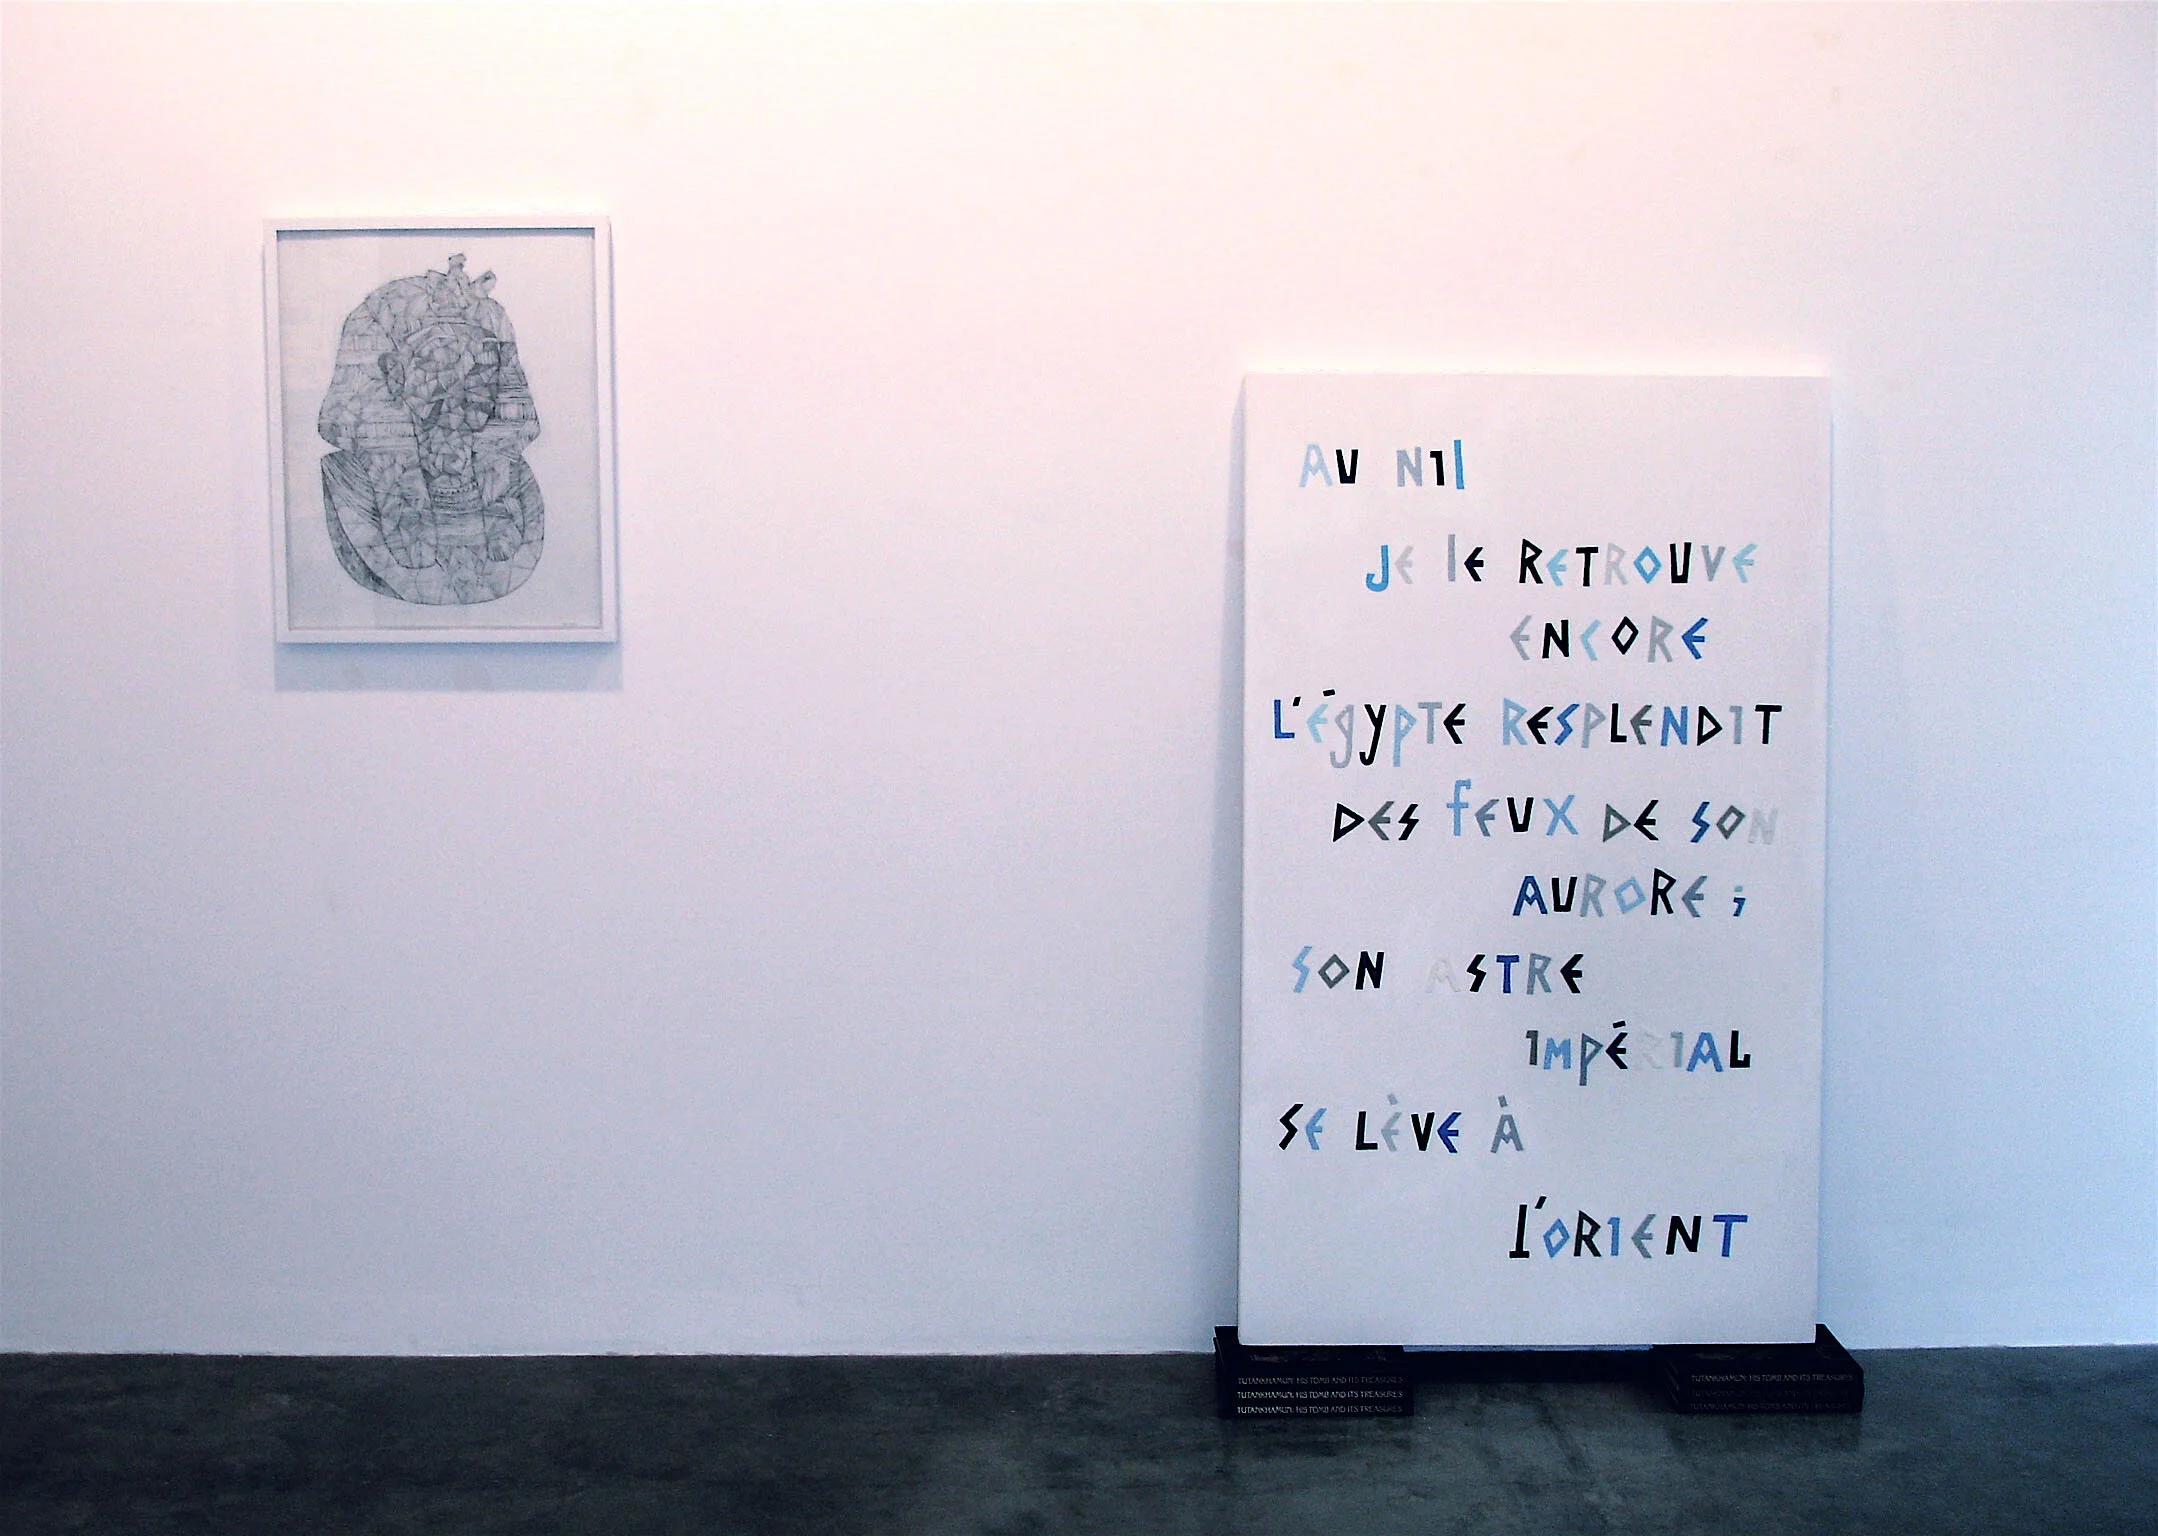 AU Nil
JE lE RETROUVE
ENCORE
L'ÉgyPTE RESPLENDIT
DES fEUX DE SON
AURORE ;
SON ASTRE
IMPÉRIAL
SE LÈVE À
l'ORIENT
TUTANKHAMUN: HIS TOMB AND ITS TREASURES
TUTANKHAMUN: HIS TOMB AND ITS TREASURES
TUTANKHAMUN: HIS TOMB AND ITS TREASURES
TUTANKHAMUN: HIS TOMB AND ITS TREASURES
TUTANKHAMUN: HIS TOMB AND ITS TREASURES
TUTANKHAMUN: HIS TOMB AND ITS TREASURES